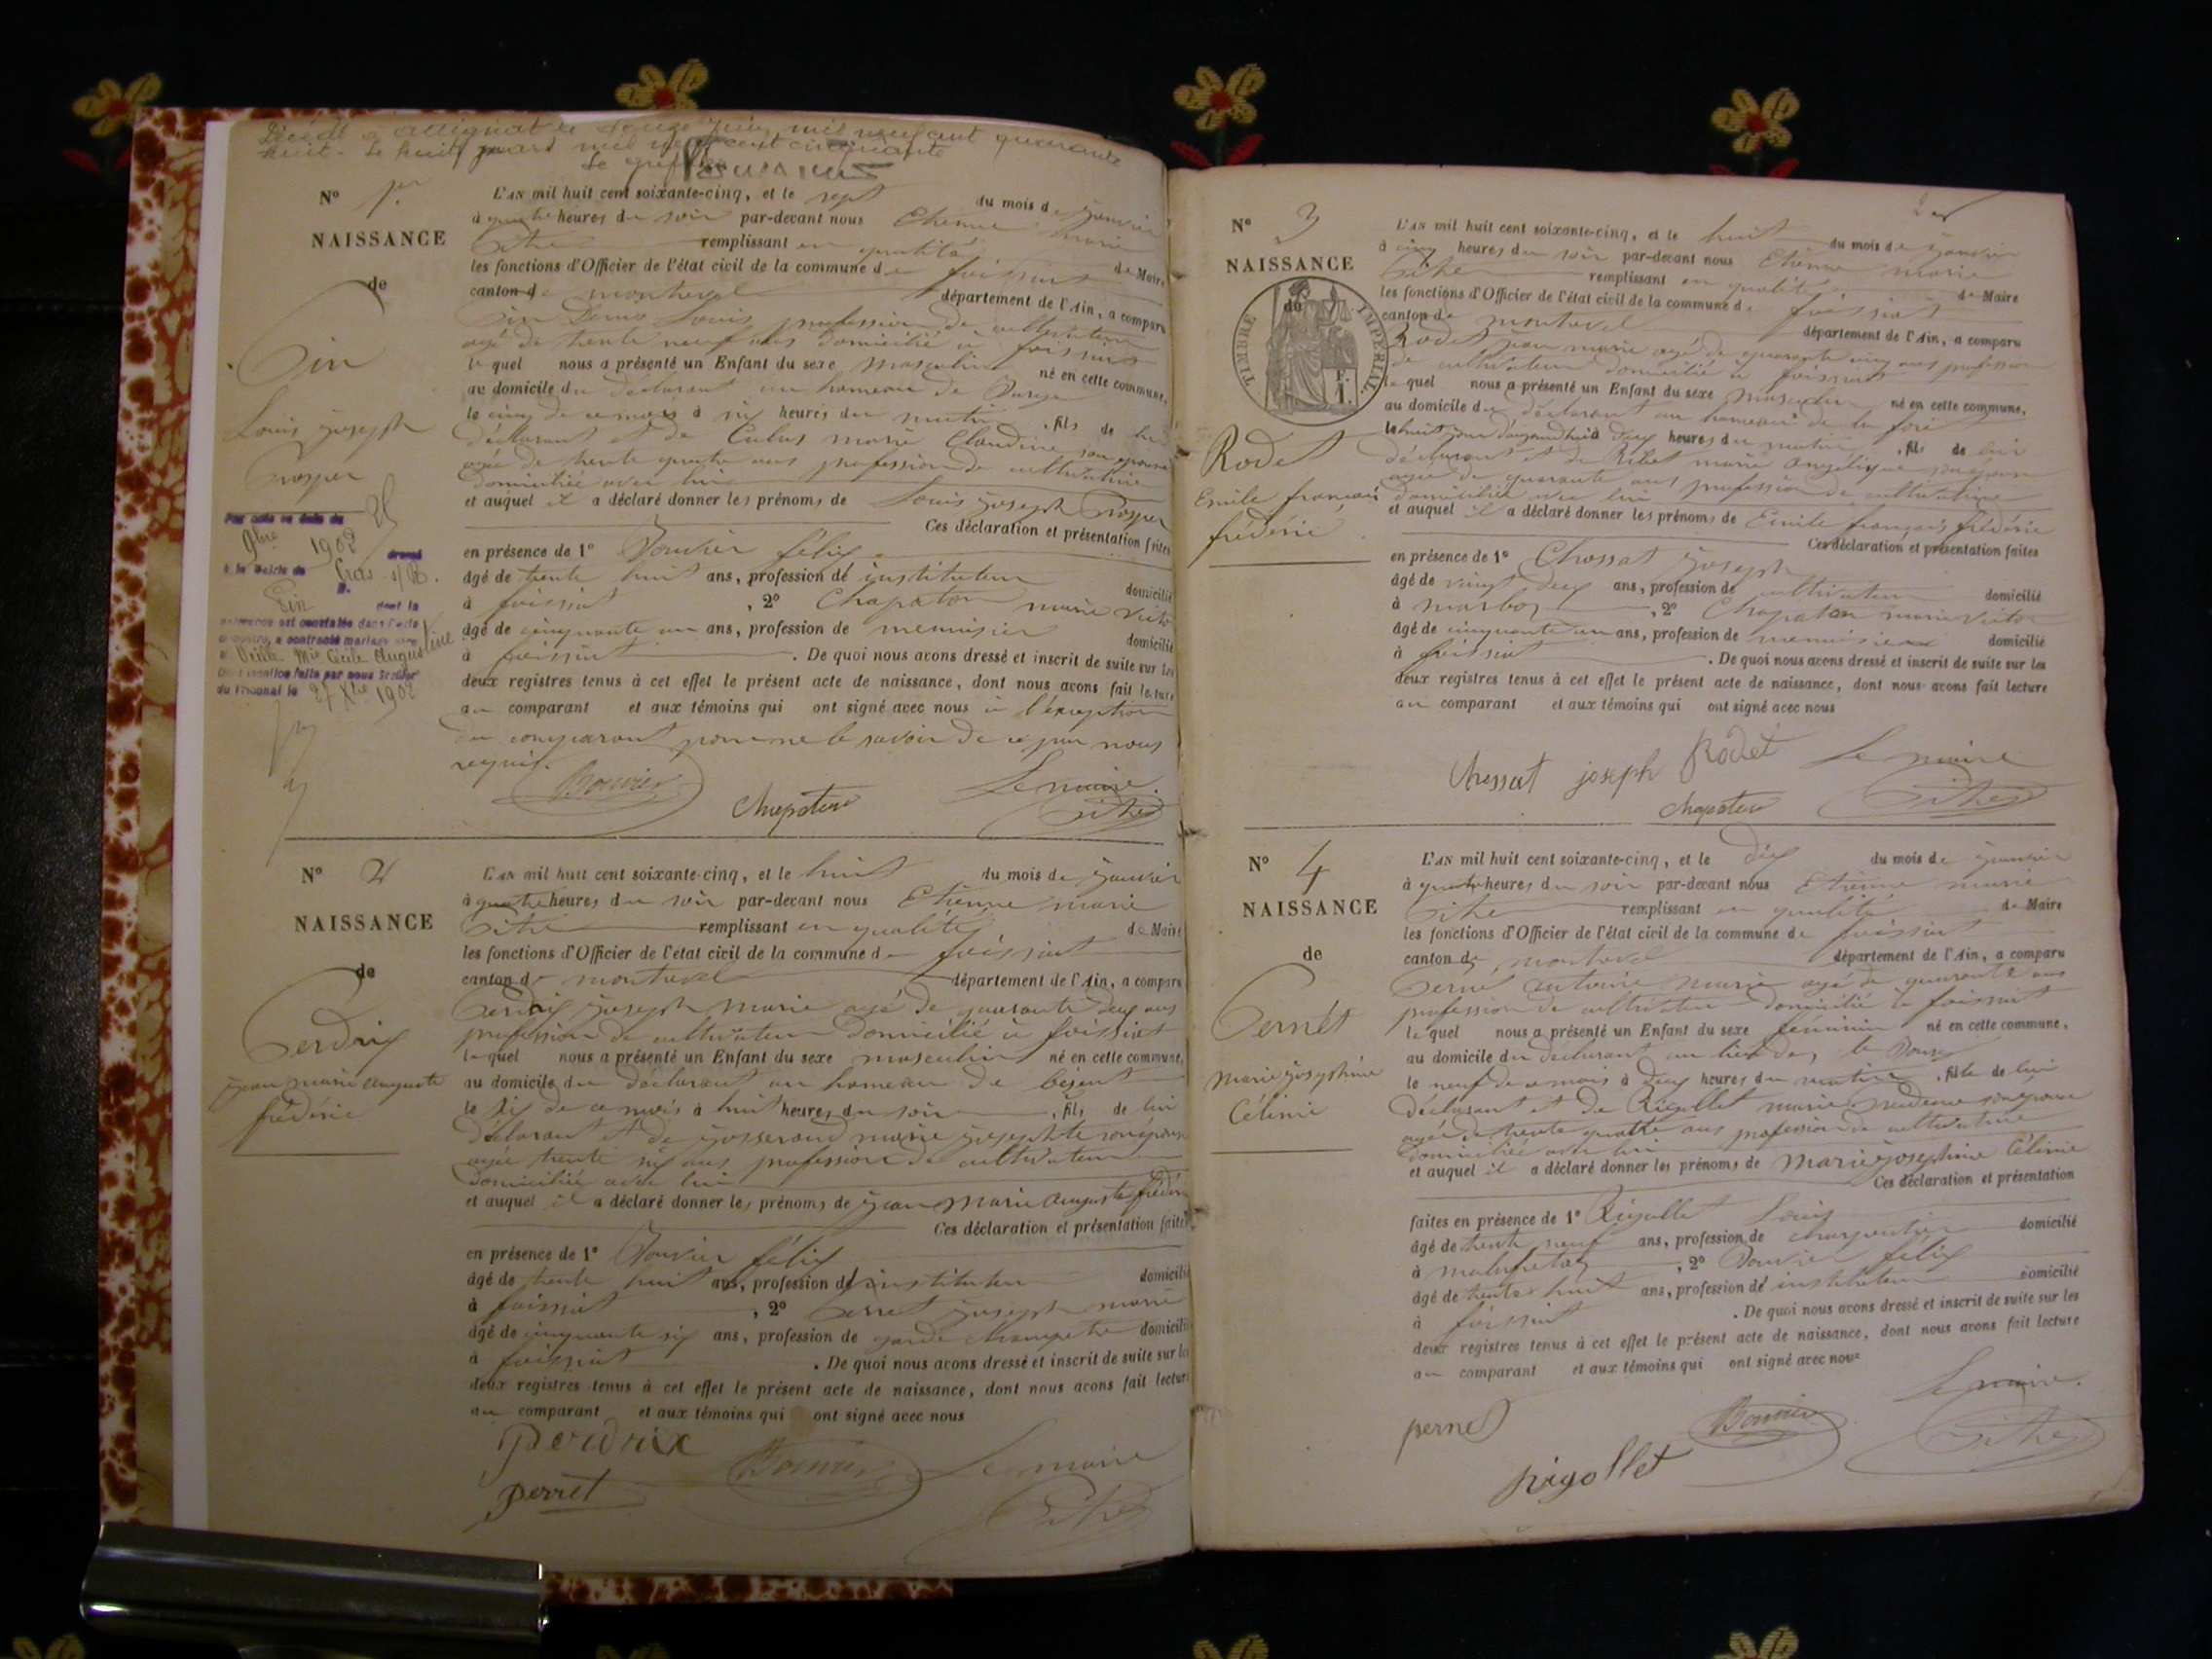 Décédé à Attignat le douze juin mil neuf cent quarante
huit. Le huit mars mil neuf cent cinquante
Le greffier
N° 1er
NAISSANCE
de
Pin
Louis joseph
Prosper
Par acte en date du 25
9bre 1902 dressé
à la Mairie de Cras s/R.
M. Pin dont la
naissance est constatée dans l'acte
ci-contre, a contracté mariage avec
Mie Cécile Augustine
Cette mention faite par nous Greffier
du Tribunal le 27 Xbre 1902
L'AN mil huit cent soixante-cinq, et le sept du mois de janvier
à quatre heures du soir par-devant nous Etienne marie
Pithe remplissant en qualité de Maire
les fonctions d'Officier de l'état civil de la commune de foissiat
canton de montrevel département de l'Ain, a comparu
Pin Louis profession de cultivateur
agé de trente neuf ans domicilié à foissiat
lequel nous a présenté un Enfant du sexe masculin né en cette commune,
au domicile du déclarant au hameau de
le cinq de ce mois à six heures du matin, fils de lui
déclarant et de marie Claudine son épouse
agée de trente quatre ans profession de cultivatrice
domiciliée avec lui
et auquel il a déclaré donner les prénoms de Louis joseph Prosper
Ces déclaration et présentation faites
en présence de 1° Bouvier félix
âgé de trente huit ans, profession de instituteur domicilié
à foissiat, 2° Chapaton marie victor
âgé de cinquante un ans, profession de menuisier domicilié
à foissiat. De quoi nous avons dressé et inscrit de suite sur les
deux registres tenus à cet effet le présent acte de naissance, dont nous avons fait lecture
au comparant et aux témoins qui ont signé avec nous à l'exception
du comparant pour ne le savoir de ce par nous
requis.
Bouvier Chapaton Le maire
Pithe
N° 2
NAISSANCE
de
Perdrix
jean marie auguste
frédéric
L'AN mil huit cent soixante-cinq, et le huit du mois de janvier
à quatre heures du soir par-devant nous Etienne marie
Pithe remplissant en qualité de Maire
les fonctions d'Officier de l'état civil de la commune de foissiat
canton de montrevel département de l'Ain, a comparu
Perdrix joseph marie agé de quarante deux ans
profession de cultivateur domicilié à foissiat
lequel nous a présenté un Enfant du sexe masculin né en cette commune,
au domicile du déclarant au hameau de
le six de ce mois à huit heures du soir, fils de lui
déclarant et de josserand marie josephte son épouse
agée trente six ans profession de cultivateur
domiciliée avec lui
et auquel il a déclaré donner les prénoms de jean marie auguste frédéric
Ces déclaration et présentation faites
en présence de 1° Bouvier félix
âgé de trente huit ans, profession de instituteur domicilié
à foissiat, 2° Perret joseph marie
âgé de cinquante six ans, profession de garde champetre domicilié
à foissiat. De quoi nous avons dressé et inscrit de suite sur les
deux registres tenus à cet effet le présent acte de naissance, dont nous avons fait lecture
au comparant et aux témoins qui ont signé avec nous
perdrix Bouvier Le maire
perret Pithe
N° 3
NAISSANCE
de
TIMBRE IMPÉRIAL
F.
1.
Rodet
Emile françois
frédéric
L'AN mil huit cent soixante-cinq, et le huit du mois de janvier
à cinq heures du soir par-devant nous Etienne marie
Pithe remplissant en qualité de Maire
les fonctions d'Officier de l'état civil de la commune de foissiat
canton de montrevel département de l'Ain, a comparu
Rodet jean marie agé de quarante cinq ans profession
de cultivateur domicilié à foissiat
lequel nous a présenté un Enfant du sexe masculin né en cette commune,
au domicile du déclarant au hameau de
le huit jour d'aujourd'hui à deux heures du matin, fils de lui
déclarant et de marie angélique son épouse
agée de quarante ans profession de cultivatrice
domiciliée avec lui
et auquel il a déclaré donner les prénoms de Emile françois frédéric
Ces déclaration et présentation faites
en présence de 1° Chossat joseph
âgé de vingt deux ans, profession de cultivateur domicilié
à marboz, 2° Chapaton marie victor
âgé de cinquante un ans, profession de menuisier domicilié
à foissiat. De quoi nous avons dressé et inscrit de suite sur les
deux registres tenus à cet effet le présent acte de naissance, dont nous avons fait lecture
au comparant et aux témoins qui ont signé avec nous
Chossat joseph Rodet Le maire
Chapaton Pithe
N° 4
NAISSANCE
de
Pernet
Marie josephine
Célinie
L'AN mil huit cent soixante-cinq, et le dix du mois de janvier
à quatre heures du soir par-devant nous Etienne marie
Pithe remplissant en qualité de Maire
les fonctions d'Officier de l'état civil de la commune de foissiat
canton de montrevel département de l'Ain, a comparu
Pernet antoine marie agé de quarante ans
profession de cultivateur domicilié à foissiat
lequel nous a présenté un Enfant du sexe féminin né en cette commune,
au domicile du déclarant au lieu de
le neuf de ce mois à deux heures du matin, fille de lui
déclarant et de Rigollet marie son épouse
agée de trente quatre ans profession de cultivatrice
domiciliée avec lui
et auquel il a déclaré donner les prénoms de Marie josephine Célinie
Ces déclaration et présentation
faites en présence de 1° Rigollet Louis
âgé de trente neuf ans, profession de charpentier domicilié
à malafretaz, 2° Bouvier félix
âgé de trente huit ans, profession de instituteur domicilié
à foissiat. De quoi nous avons dressé et inscrit de suite sur les
deux registres tenus à cet effet le présent acte de naissance, dont nous avons fait lecture
au comparant et aux témoins qui ont signé avec nous
pernet Bouvier Le maire.
rigollet Pithe